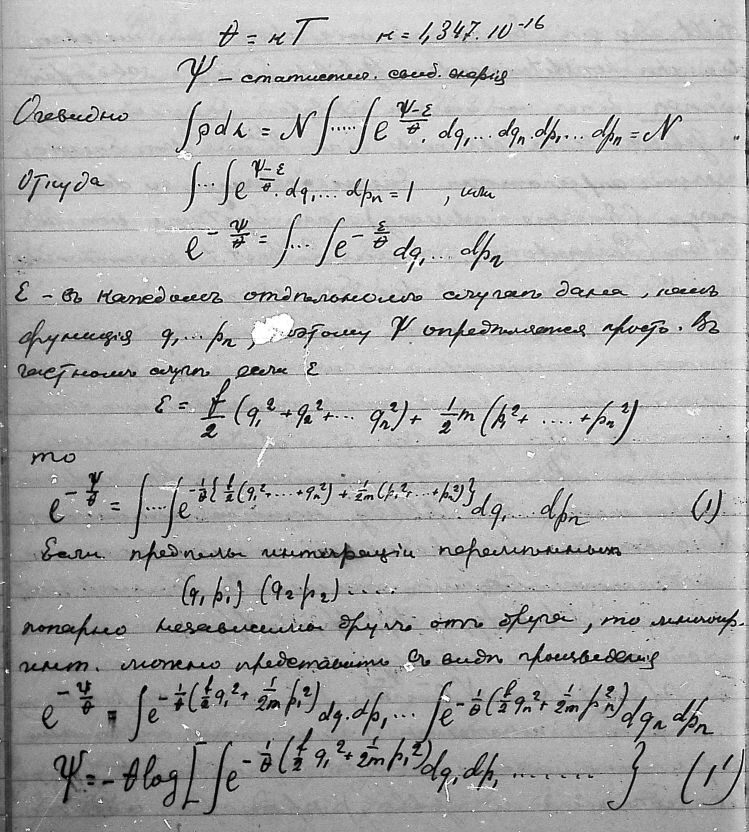 θ = κT κ = 1,347.10⁻¹⁶
Ψ – статистич. своб. энергія
Очевидно ∫ρdλ = N∫.....∫e^{(Ψ-ε)/θ}. dq₁... dqₙ dp₁... dpₙ = N
Откуда ∫...∫e^{(Ψ-ε)/θ}. dq₁... dpₙ = 1 , или
e^{-Ψ/θ} = ∫...∫e^{-ε/θ} dq₁... dpₙ
ε – въ каждомъ отдѣльномъ случаѣ дана, какъ
функція q₁... pₙ, поэтому Ψ опредѣляется просто. Въ
частномъ случ. если ε
ε = f/2 (q₁² + q₂² + ... qₙ²) + 1/2m (p₁² + ..... + pₙ²)
то
e^{-Ψ/θ} = ∫....∫e^{-1/θ{f/2(q₁²+...+qₙ²) + 1/2m(p₁²+...+pₙ²)}} dq₁... dpₙ (1)
Если предѣлы интеграціи перемѣнныхъ
(q₁p₁) (q₂p₂) .....
попарно независимы другъ отъ друга, то многокр.
инт. можно представить въ видѣ произведенія
e^{-Ψ/θ} = ∫e^{-1/θ(f/2 q₁² + 1/2m p₁²)} dq₁dp₁... ∫e^{-1/θ(f/2 qₙ² + 1/2m pₙ²)} dqₙ dpₙ
Ψ = -θ log[∫e^{-1/θ(f/2 q₁² + 1/2m p₁²)} dq₁dp₁ ........ } (1')